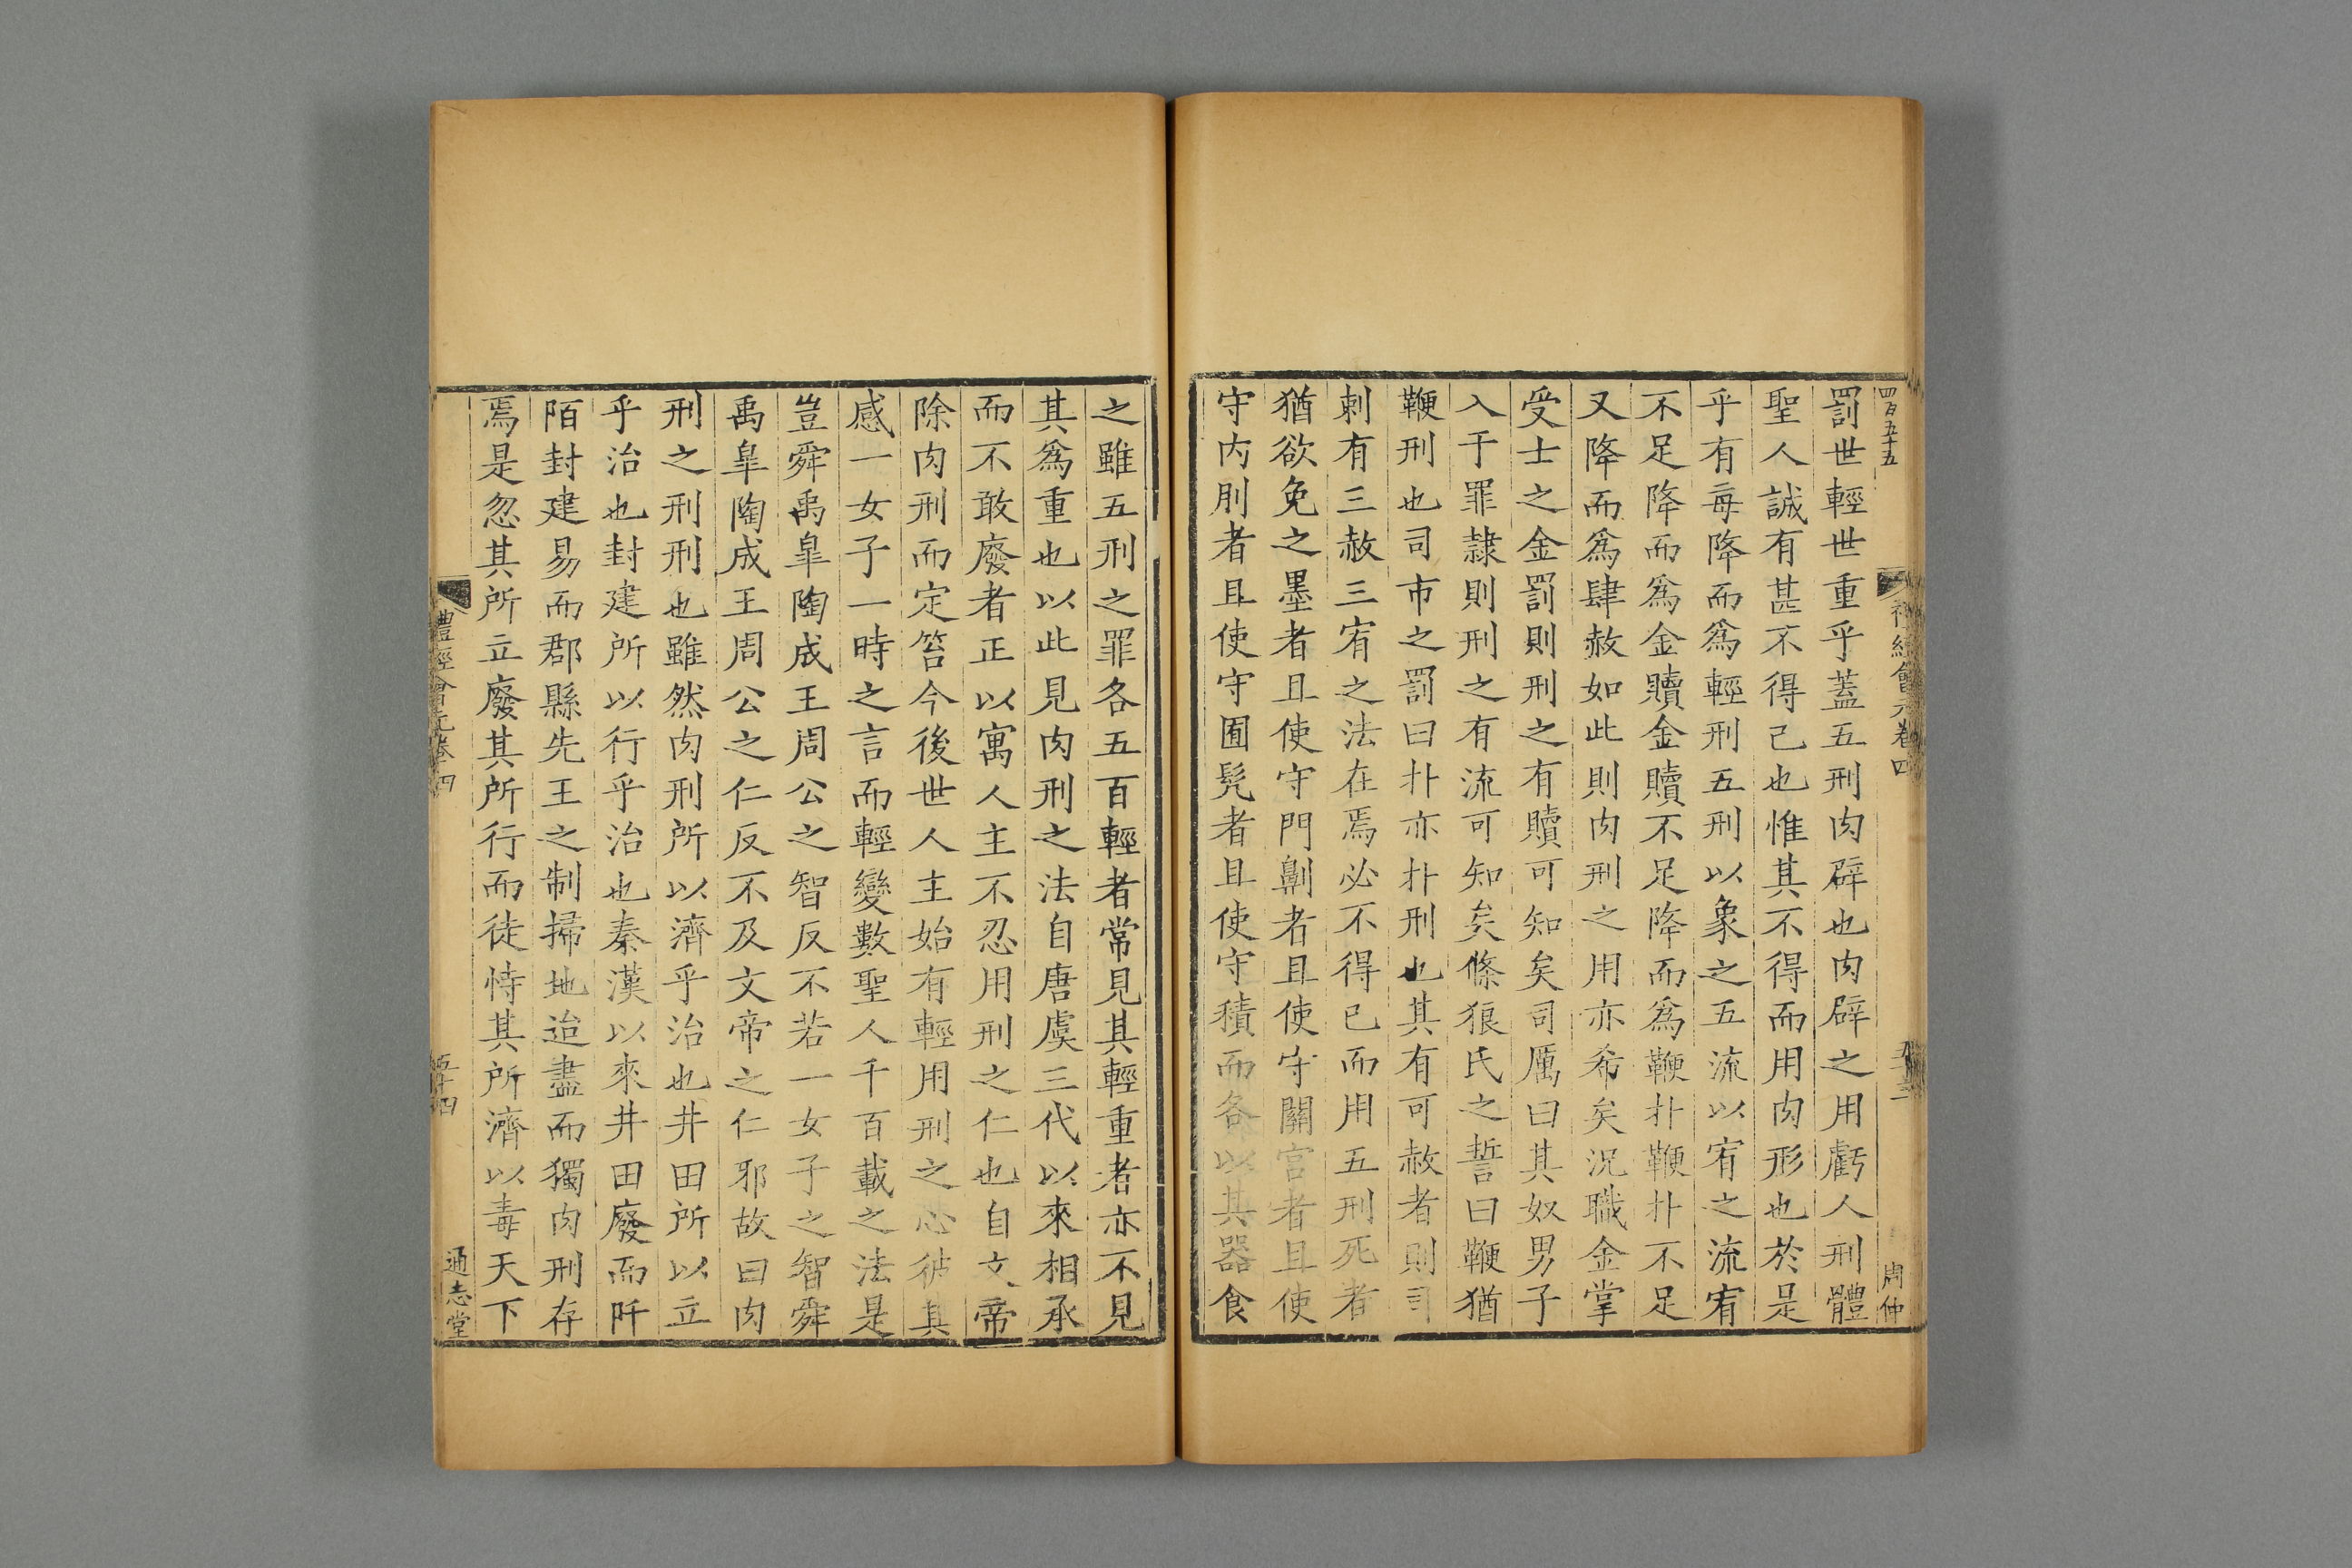 四百五十五
禮經會元卷四
周仲
罰世輕世重乎蓋五刑肉辟也肉辟之用虧人刑體
聖人誠有甚不得已也惟其不得而用肉形也於是
乎有每降而為輕刑五刑以象之五流以宥之流宥
不足降而為金贖金贖不足降而為鞭扑鞭扑不足
又降而為肆赦如此則肉刑之用亦希矣况職金掌
受士之金罰則刑之有贖可知矣司厲曰其奴男子
入于罪隸則刑之有流可知矣條狼氏之誓曰鞭猶
鞭刑也司市之罰曰扑亦扑刑也其有可赦者則司
刺有三赦三宥之法在焉必不得已而用五刑死者
猶欲免之墨者且使守門劓者且使守關宮者且使
守內刖者且使守囿髡者且使守積而各以其器食
之雖五刑之罪各五百輕者常見其輕重者亦不見
其為重也以此見肉刑之法自唐虞三代以來相承
而不敢廢者正以寓人主不忍用刑之仁也自文帝
除肉刑而定笞今後世人主始有輕用刑之心彼其
感一女子一時之言而輕變數聖人千百載之法是
豈舜禹皐陶成王周公之智反不若一女子之智舜
禹皐陶成王周公之仁反不及文帝之仁邪故曰肉
刑之刑刑也雖然肉刑所以濟乎治也井田所以立
乎治也封建所以行乎治也秦漢以來井田廢而阡
陌封建易而郡縣先王之制掃地迨盡而獨肉刑存
焉是忽其所立廢其所行而徒恃其所濟以毒天下
禮經會元卷四
五十四
通志堂